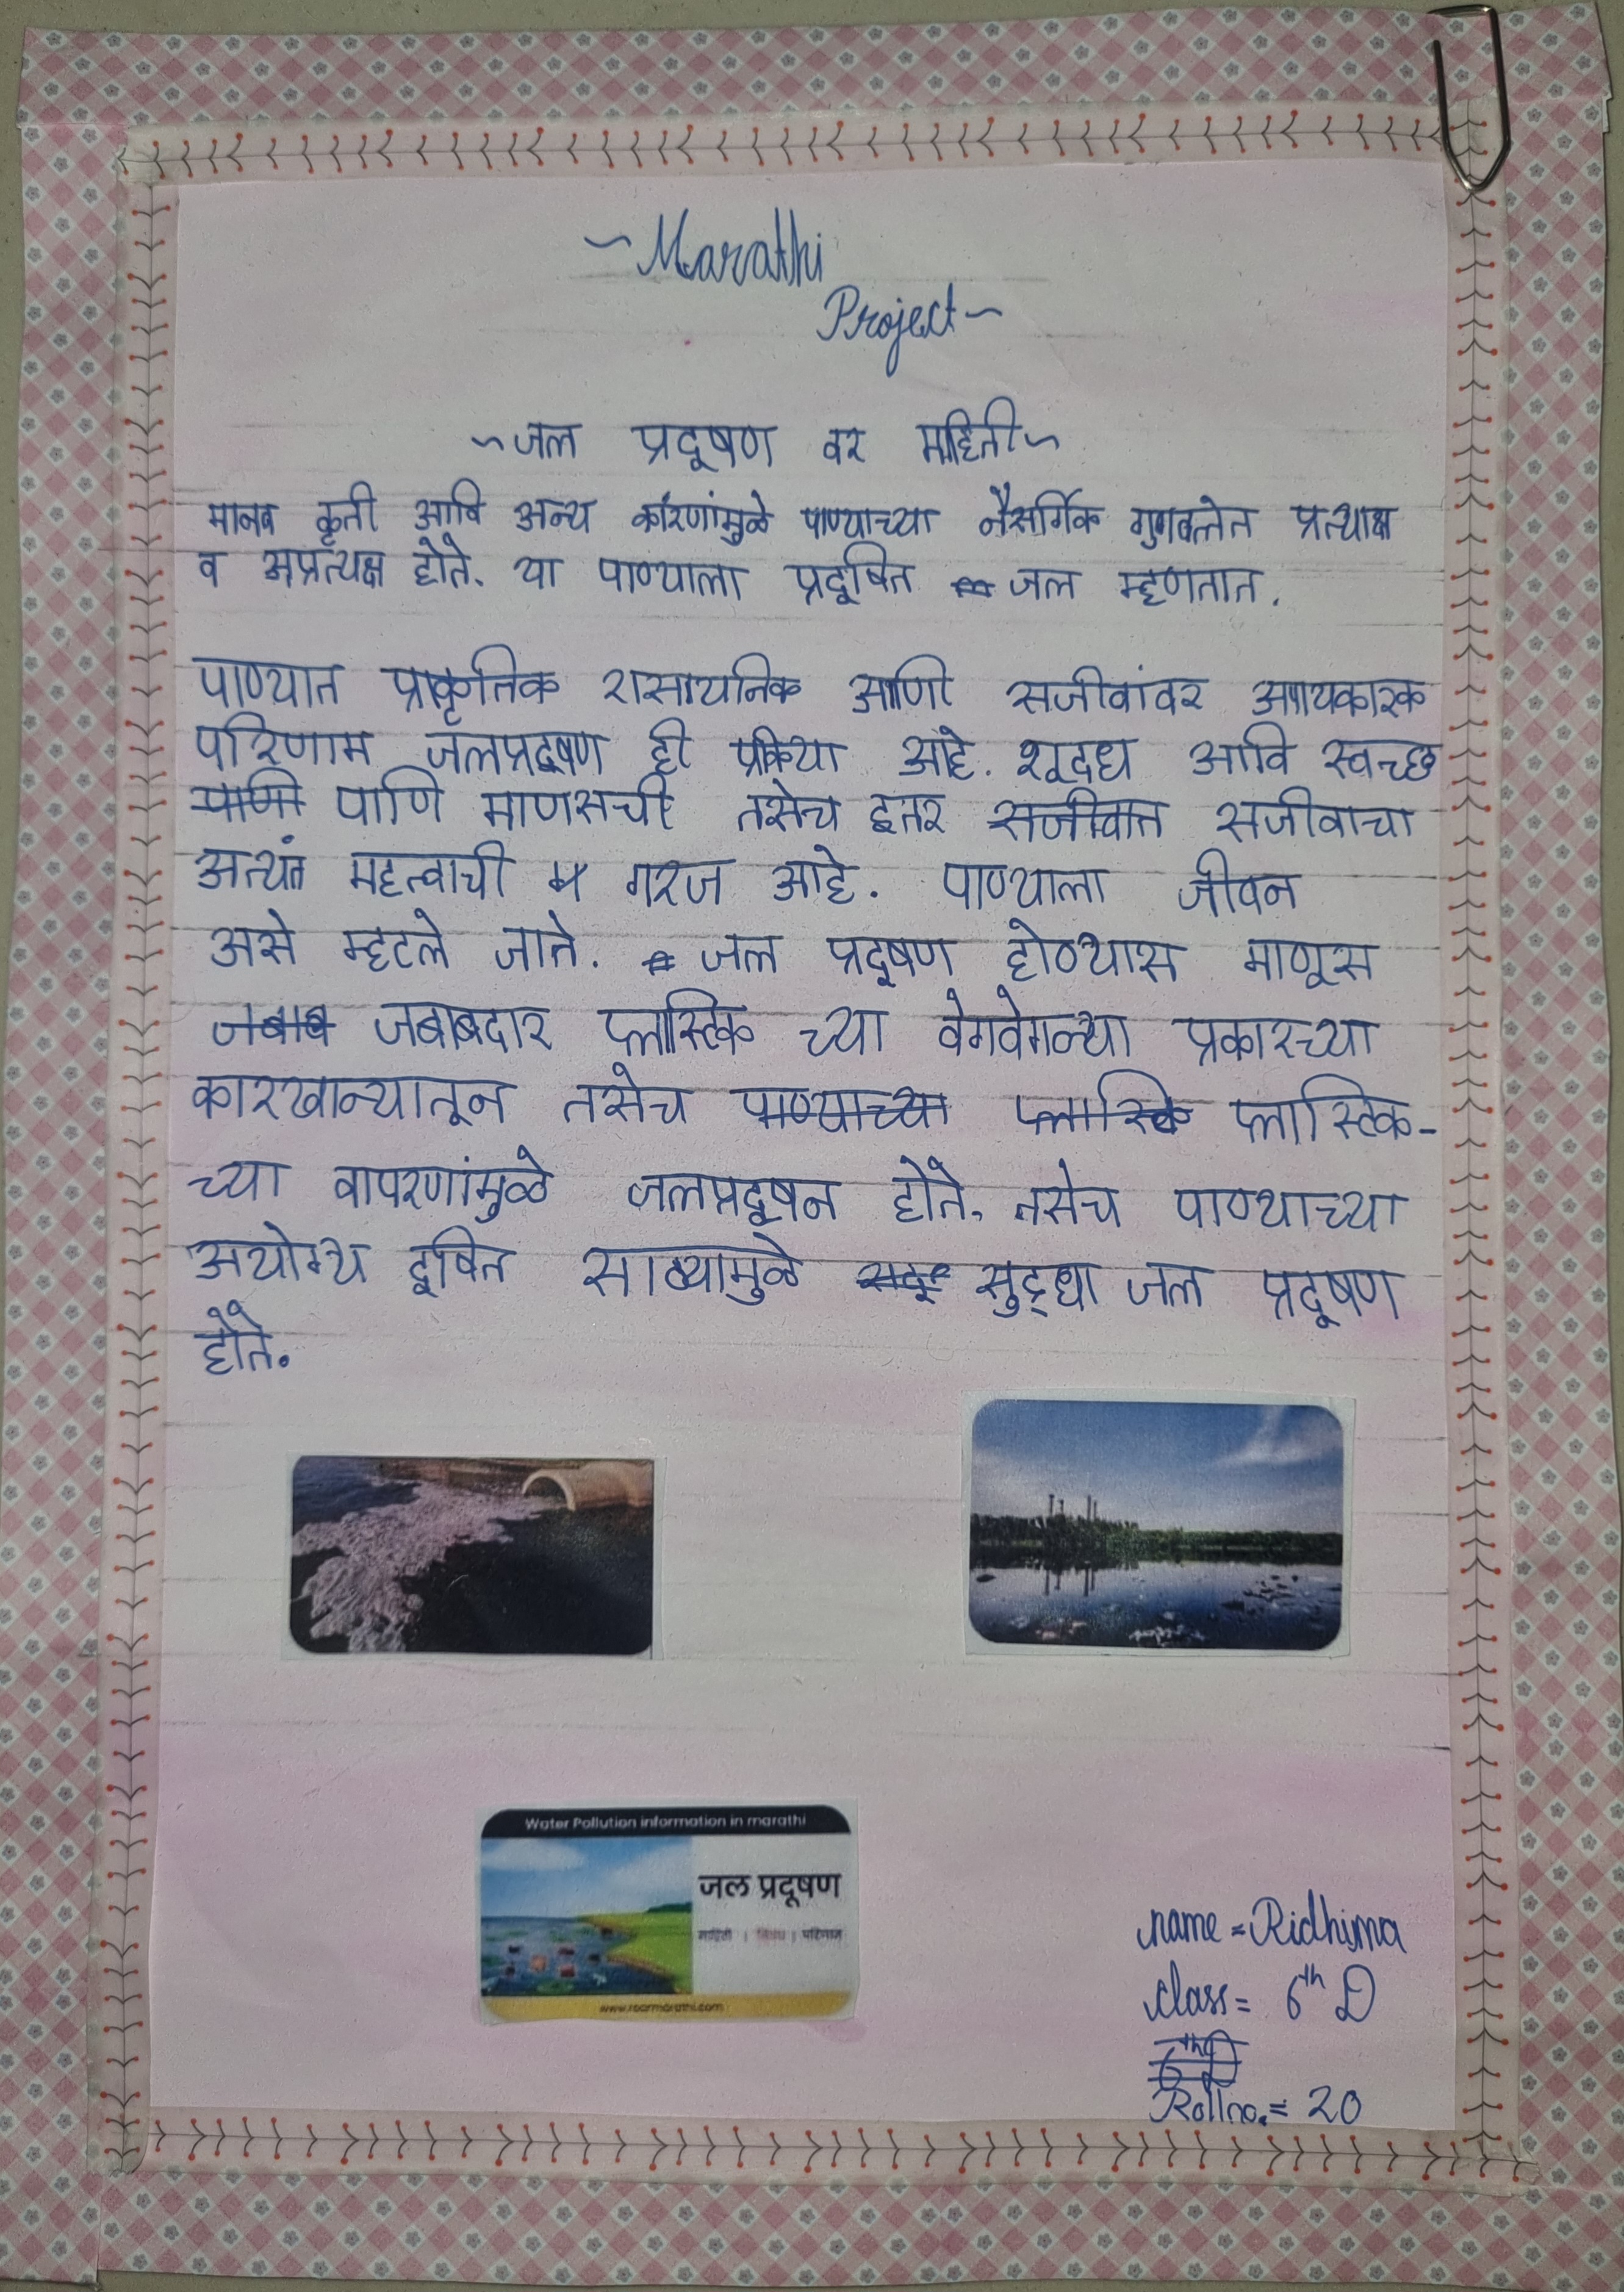 ~Marathi
Project~
~जल प्रदूषण वर माहिती~
मानव कृती आवि अन्य कारणांमुळे पाण्याच्या नैसर्गिक गुणवत्तेत प्रत्याक्ष
व अप्रत्यक्ष होते. या पाण्याला प्रदूषित जल म्हणतात.
पाण्यात प्राकृतिक रासायनिक आणी सजीवांवर अपायकारक
परिणाम जलप्रदूषण ही प्रक्रिया आहे. शूदध आवि स्वच्छ
पाणी पाणि माणसची तसेच इतर सजीवात सजीवाचा
अत्यंत महत्वाची गरज आहे. पाण्याला जीवन
असे म्हटले जाते. जल प्रदूषण होण्यास माणूस
जबाब जबाबदार प्लास्टिक च्या वेगवेगळ्या प्रकारच्या
कारखान्यातून तसेच पाण्याच्या प्लास्टिक प्लास्टिक-
च्या वापरणांमुळे जलप्रदूषन होते. तसेच पाण्याच्या
अयोग्य दूषित साठ्यामुळे सुद्धा जल प्रदूषण
होते.
Water Pollution information in marathi
जल प्रदूषण
माहिती | निबंध | परिणाम
www.roarmarathi.com
name = Ridhima
class = 6th D
6th D
Rollno. = 20